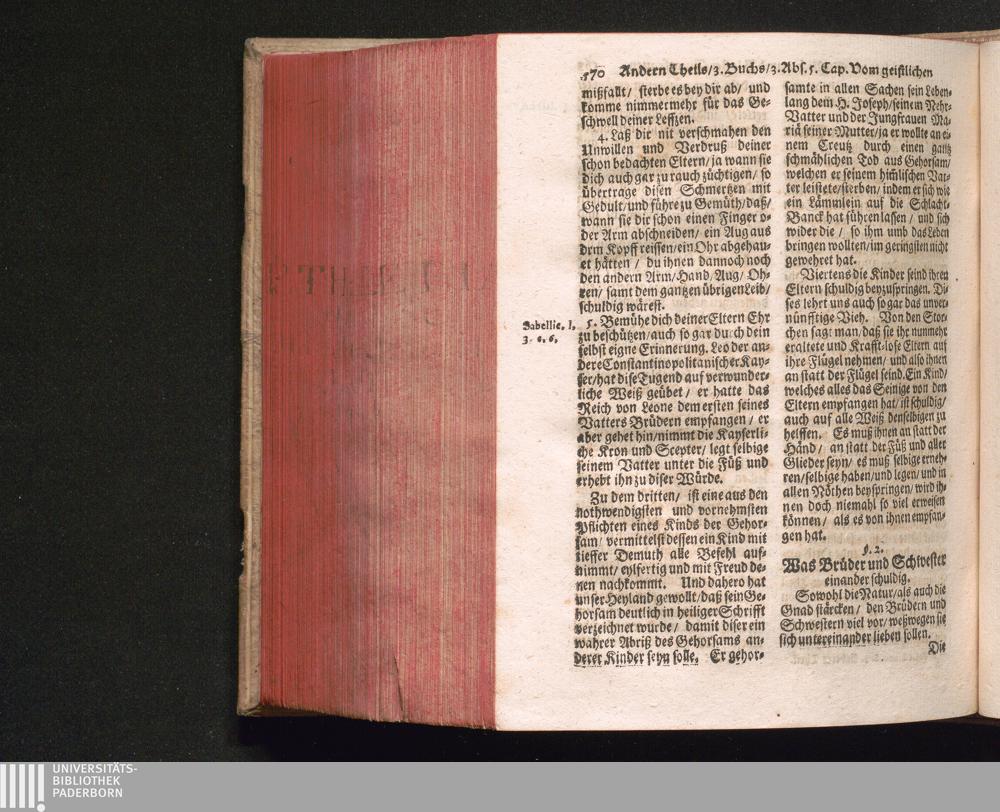 570 Andern Theils/3. Buchs/3. Abs. 5. Cap. Vom geistlichen
mißfallt/ sterbe es bey dir ab/ und
komme nimmermehr für das Ge-
schwell deiner Lefftzen.
4. Laß dir nit verschmahen den
Unwillen und Verdruß deiner
schon bedachten Eltern/ ja wann sie
dich auch gar zu rauch züchtigen/ so
übertrage disen Schmertzen mit
Gedult/ und führe zu Gemüth/ daß/
wann sie dir schon einen Finger o-
der Arm abschneiden/ ein Aug aus
dem Kopff reissen/ ein Ohr abgehau-
et hätten / du ihnen dannoch noch
den andern Arm/ Hand/ Aug/ Oh-
ren/ samt dem gantzen übrigen Leib/
schuldig wärest.
Sabellic. l.
3. c. 6.
5. Bemühe dich deiner Eltern Ehr
zu beschützen/ auch so gar durch dein
selbst eigne Erinnerung. Leo der an-
dere Constantinopolitanischer Kay-
ser/ hat dise Tugend auf verwunder-
liche Weiß geübet/ er hatte das
Reich von Leone dem ersten seines
Vatters Brüdern empfangen / er
aber gehet hin/ nimmt die Kayserli-
che Kron und Scepter/ legt selbige
seinem Vatter unter die Füß und
erhebt ihn zu diser Würde.
Zu dem dritten/ ist eine aus den
nothwendigsten und vornehmsten
Pflichten eines Kinds der Gehor-
sam/ vermittelst dessen ein Kind mit
tieffer Demuth alle Befehl auf-
nimmt/ eylfertig und mit Freud de-
nen nachkommt. Und dahero hat
unser Heyland gewollt/ daß sein Ge-
horsam deutlich in heiliger Schrifft
verzeichnet wurde/ damit diser ein
wahrer Abriß des Gehorsams an-
derer Kinder seyn solle. Er gehor-
samte in allen Sachen sein Leben-
lang dem H. Joseph/ seinem Nehr-
Vatter und der Jungfrauen Ma-
riä seiner Mutter/ ja er wollte an ei-
nem Creutz durch einen gantz
schmählichen Tod aus Gehorsam/
welchen er seinem him̃lischen Vat-
ter leistete/ sterben/ indem er sich wie
ein Lämmlein auf die Schlacht-
Banck hat führen lassen / und sich
wider die / so ihm umb das Leben
bringen wollten/ im geringsten nicht
gewehret hat.
Viertens die Kinder seind ihren
Eltern schuldig beyzuspringen. Di-
ses lehrt uns auch so gar das unver-
nünfftige Vieh. Von den Stor-
chen sagt man/ daß sie ihr nunmehr
eraltete und Krafft-lose Eltern auf
ihre Flügel nehmen/ und also ihnen
an statt der Flügel seind. Ein Kind/
welches alles das Seinige von den
Eltern empfangen hat/ ist schuldig/
auch auf alle Weiß denselbigen zu
helffen. Es muß ihnen an statt der
Händ/ an statt der Füß und aller
Glieder seyn/ es muß selbige erneh-
ren/ selbige haben/ und legen/ und in
allen Nöthen beyspringen/ wird ih-
nen doch niemahl so viel erweisen
können/ als es von ihnen empfan-
gen hat.
§. 2.
Was Brüder und Schwester
einander schuldig.
Sowohl die Natur/ als auch die
Gnad stärcken/ den Brüdern und
Schwestern viel vor/ weßwegen sie
sich untereinander lieben sollen.
Die
UNIVERSITÄTS-
BIBLIOTHEK
PADERBORN